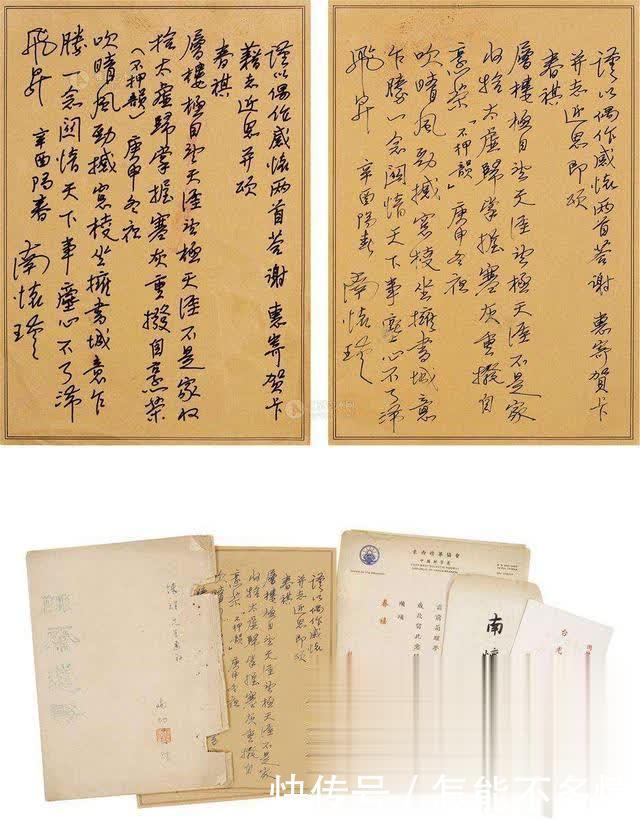 謹以偶作感懷兩首答謝 惠寄賀卡
藉志近思并頌
春祺
層樓極目望天涯望極天涯不是家收
拾太虛歸掌握寒灰重撥自烹茶
(不押韻) 庚申冬夜
吹晴風勁撼窗棱坐擁書城意乍
騰一念關情天下事塵心不了滯
飛昇 辛酉陽春 南懷瑾
謹以偶作感懷兩首答謝 惠寄賀卡
并志近思即頌
春祺
層樓極目望天涯望極天涯不是家
收拾太虛歸掌握寒灰重撥自
烹茶「不押韻」庚申冬夜
吹晴風勁撼窗棱坐擁書城意
乍騰一念關情天下事塵心不了滯
飛昇 辛酉陽春 南懷瑾
謹以偶作感懷
并志近思即頌
春祺
層樓極目望天涯望極天涯不是家
收拾太虛歸掌握寒灰重撥自
烹茶「不押韻」庚申冬夜
東西精華協會
南
台
快传号 / 怎能不多